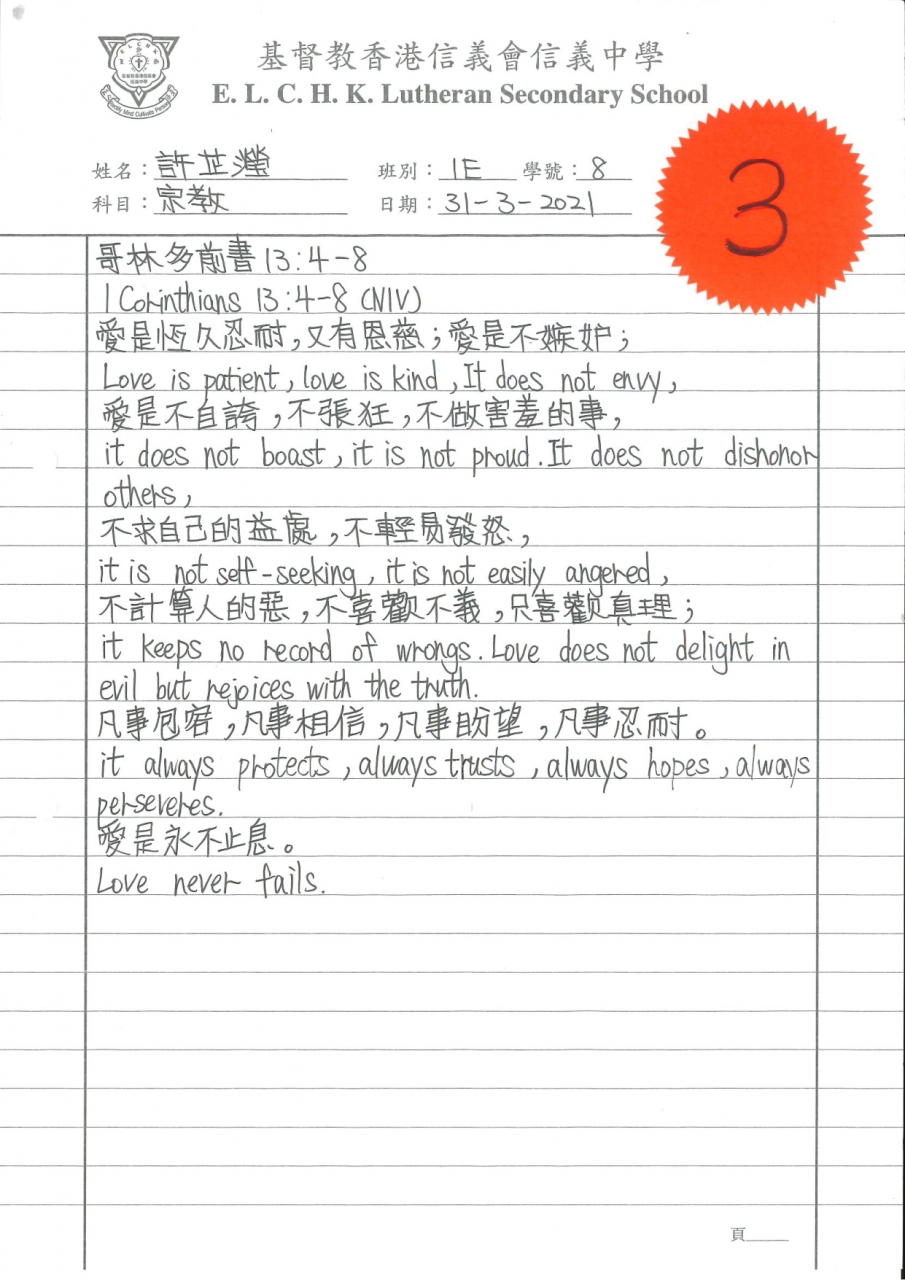 基督教香港信義會信義中學
E. L. C. H. K. Lutheran Secondary School
3
姓名：許芷瀅 班別：1E 學號：8
科目：宗教 日期：31-3-2021
哥林多前書 13:4-8
1 Corinthians 13:4-8 (NIV)
愛是恆久忍耐，又有恩慈；愛是不嫉妒；
Love is patient, love is kind, It does not envy,
愛是不自誇，不張狂，不做害羞的事，
it does not boast, it is not proud. It does not dishonor
others,
不求自己的益處，不輕易發怒，
it is not self-seeking, it is not easily angered,
不計算人的惡，不喜歡不義，只喜歡真理；
it keeps no record of wrongs. Love does not delight in
evil but rejoices with the truth.
凡事包容，凡事相信，凡事盼望，凡事忍耐。
it always protects, always trusts, always hopes, always
perseveres.
愛是永不止息。
Love never fails.
頁